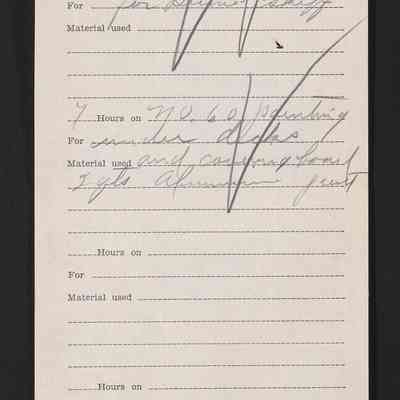 For for skiff
Material used
7 Hours on No. 60 painting
For under decks
Material used and covering board
2 gls Aluminum paint
Hours on
For
Material used
Hours on